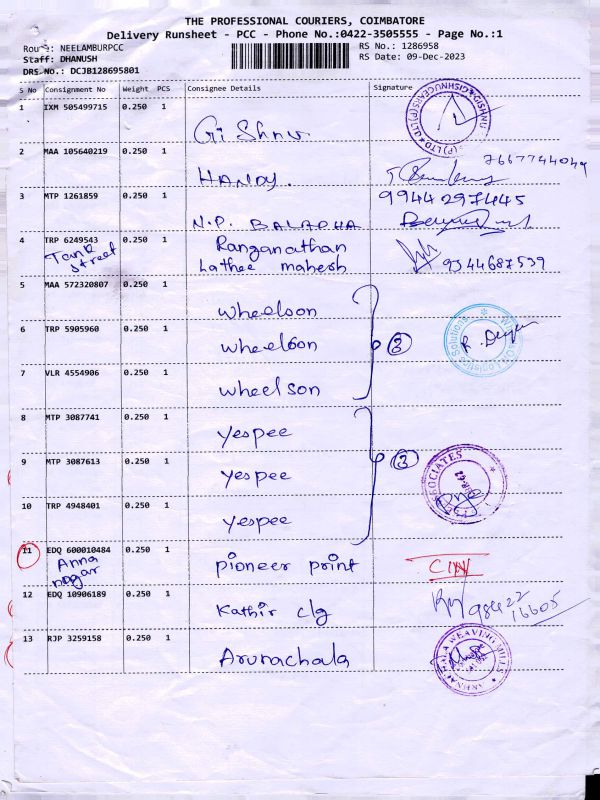 THE PROFESSIONAL COURIERS, COIMBATORE
Delivery Runsheet - PCC - Phone No.:0422-3505555 - Page No.:1
Route: NEELAMBURPCC RS No.: 1286958
Staff: DHANUSH RS Date: 09-Dec-2023
DRS No.: DCJB128695801
S No Consignment No Weight PCS Consignee Details Signature
1 IXM 505499715 0.250 1
Gi Shnu
2 MAA 105640219 0.250 1
HANDY. 7667744049
3 MTP 1261859 0.250 1 9944297445
N.P. BALAPHA
4 TRP 6249543 0.250 1 Ranganathan
Tank street Lathee mahesh 9344687539
5 MAA 572320807 0.250 1
wheelson
6 TRP 5905960 0.250 1
wheelson 3
7 VLR 4554906 0.250 1
wheelson
8 MTP 3087741 0.250 1
yespee
9 MTP 3087613 0.250 1
yespee 3
10 TRP 4948401 0.250 1
yespee
11 EDQ 600010484 0.250 1
Anna nagar pioneer print CIN
12 EDQ 10906189 0.250 1
Kathir clg 98422 16605
13 RJP 3259158 0.250 1
Arunachala